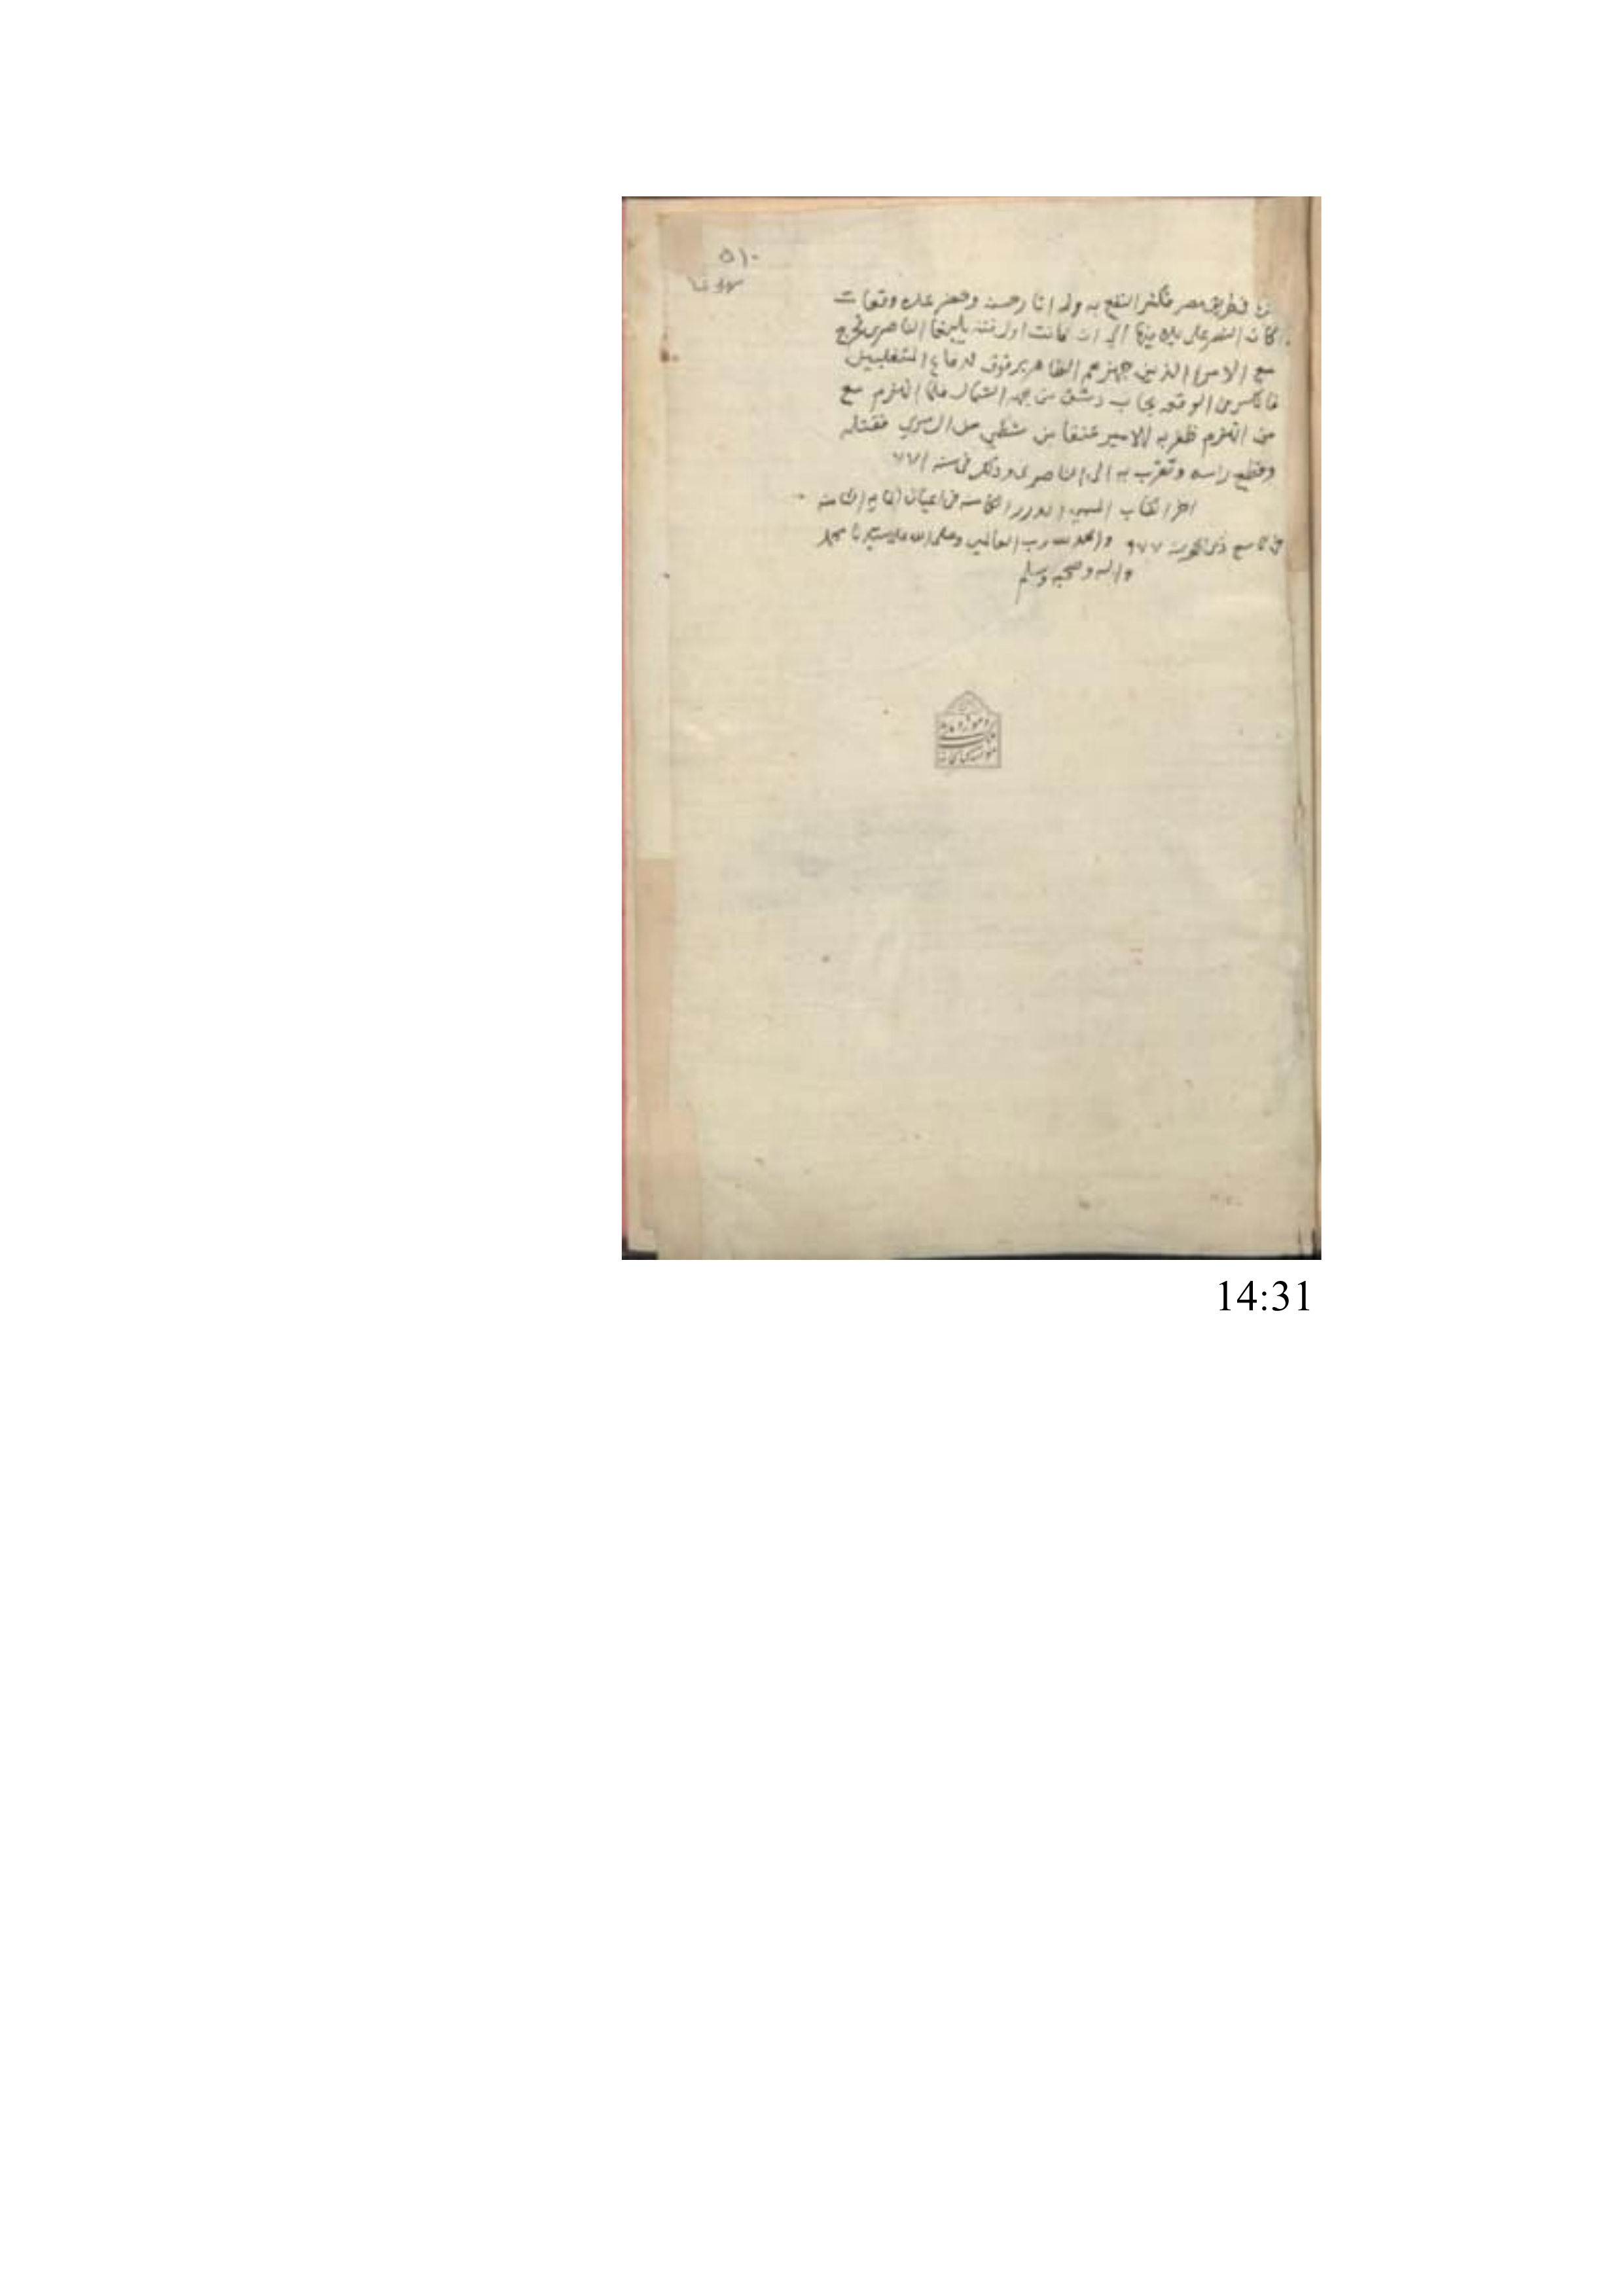 ٥١٠
في طريق مصر فكثر النفع به وله اثار حسنة وحضر عدة وقعات
كان النصر على يده فيها الى ان كانت اول فتنة يلبغا الناصرى فخرج
مع الامرا الذين جهزهم الظاهر برقوق لدفاع المتغلبين
فانكسر من الوقعة بباب دشق من جهة الشمال فلما انهزم مع
من انهزم ظفر به الامير عنقا بن شطي من السري فقتله
وقطع راسه وتقرب به الى الناصرى وذلك في سنة ٧٧١
اخر الكتاب المسمى الدرر الكامنة في اعيان المايه الثامنه
في تاسع ذى سنة ٩٧٧ والحمد لله رب العالمين وصلى الله على سيدنا محمد
واله وصحبه وسلم
14:31